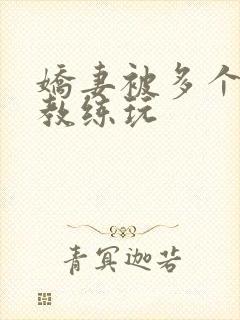 娇妻被多个
教练玩
青冥迦若